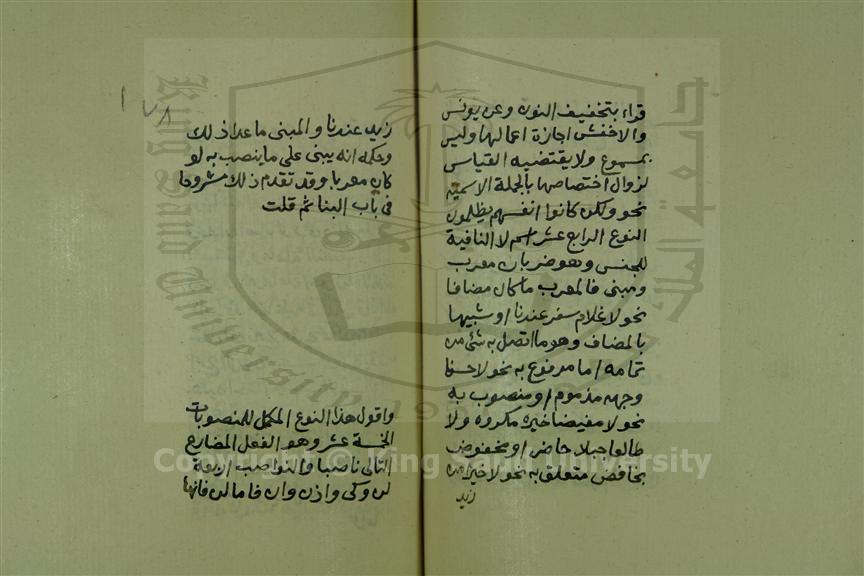 قراء بتخفيف النون وعن يونس
والاخفش اجازة اعمالها وليس
بمسموع ولا يقتضيه القياس
لزوال اختصاصها بالجملة الاسمية
نحو ولكن كانوا انفسهم يظلمون
النوع الرابع عشر اسم لا النافية
للجنس وهو ضربان معرب
ومبني فالمعرب ما كان مضافا
نحو لا غلام سفر عندنا او شبيها
بالمضاف وهو ما اتصل به شئ من
تمامه اما مرفوع به نحو لا حسنا
وجهه مذموم او منصوب به
نحو لا مفيضا خيره مكروه ولا
طالعا جبلا حاضر او مخفوض
بخافض متعلق به نحو لا خيرا من
زيد
١٧٨
زيد عندنا والمبنى ما عدا ذلك
وحكمه انه يبنى على ما ينصب به لو
كان معربا وقد تقدم ذلك مشروحا
فى باب البنا ثم قلت
واقول هذا النوع المكمل للمنصوبات
الخمسة عشر وهو الفعل المضارع
التالى ناصبا والنواصب اربعة
لن وكى واذن وان فاما لن فانها
Copyright © King Saud University
King Saud University
جامعة الملك سعود
1957